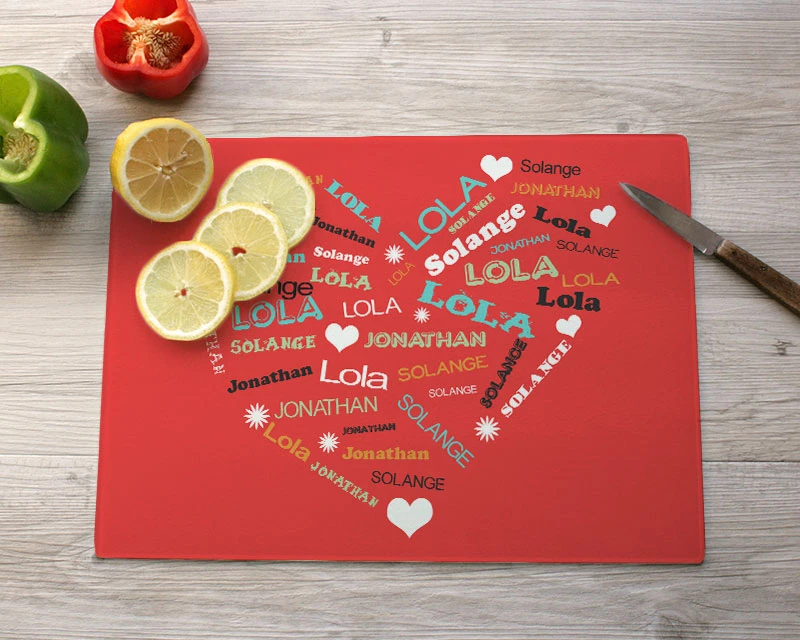 Solange
LOLA
LOLA
JONATHAN
SOLANGE
Solange
Lola
Jonathan
JONATHAN
SOLANGE
Solange
LOLA
LOLA
LOLA
LOLA
LOLA
Lola
LOLA
LOLA
SOLANGE
JONATHAN
SOLANGE
SOLANGE
Jonathan
Lola
SOLANGE
SOLANGE
JONATHAN
SOLANGE
JONATHAN
Lola
Jonathan
JONATHAN
SOLANGE